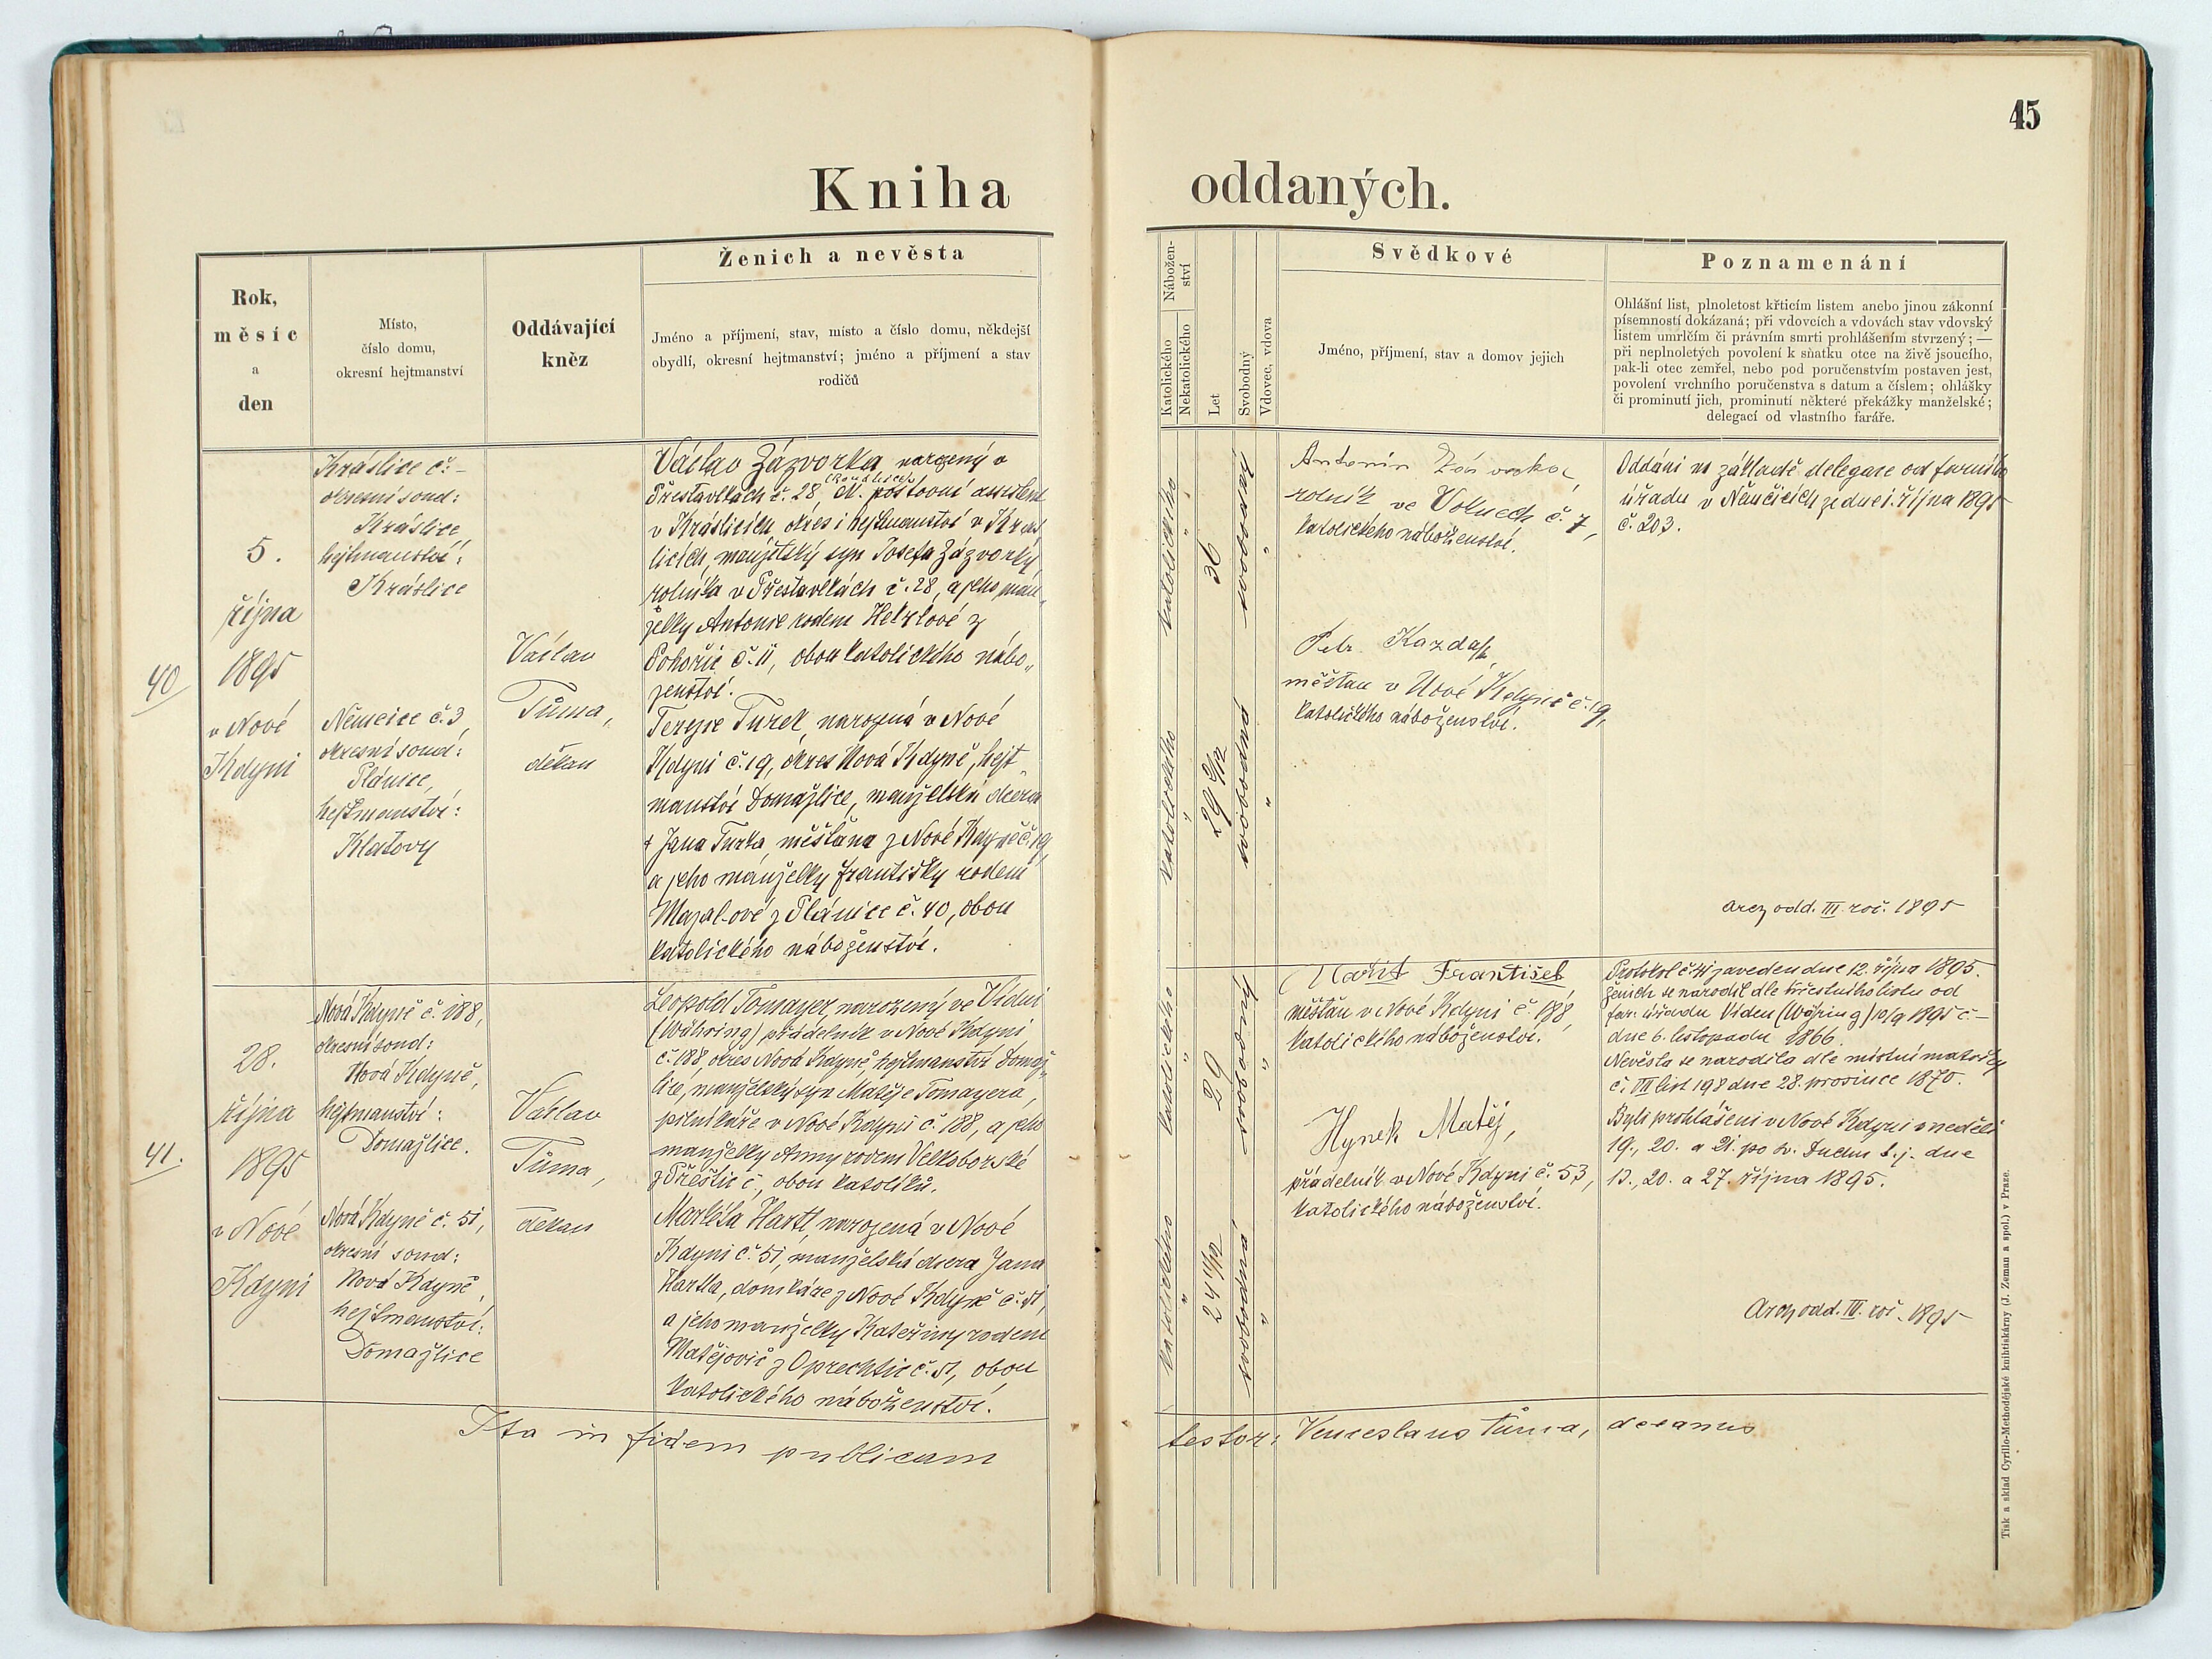 45
Kniha oddaných.
Rok,
měsíc
a
den
Místo,
číslo domu,
okresní hejtmanství
Oddávající
kněz
Ženich a nevěsta
Jméno a příjmení, stav, misto a číslo domu, někdejší
obydlí, okresní hejtmanství; jméno a příjmení a stav
rodičů
Nábožen-
ství
Katolického
Nekatolického
Let
Svobodný
Vdovec, vdova
Svědkové
Jméno, příjmení, stav a domov jejich
Poznamenání
Ohlášní list, plnoletost křticím listem anebo jinou zákonní
písemností dokázaná; při vdovcích a vdovách stav vdovský
listem umrlčím či právním smrti prohlášením stvrzený; —
při neplnoletých povolení k sňatku otce na živě jsoucího,
pak-li otec zemřel, nebo pod poručenstvím postaven jest,
povolení vrchního poručenstva s datum a číslem; ohlášky
či prominutí jich, prominutí některé překážky manželské;
delegací od vlastního faráře.
40
5.
října
1895
v Nové
Kdyni
Kráslice č. –
okresní soud:
Kráslice,
hejtmanství:
Kráslice
Němcice č. 3,
okresní soud:
Plánice,
hejtmanství:
Klatovy
Václav
Tůma,
děkan
Václav Zázvorka, narozený v
Přestavlkách č. 28, c.k. poštovní assistent
v Kráslicích, okres i hejtmanství v Krás
licích, manželský syn Josefa Zázvorky,
rolníka v Přestavlkách č. 28, a jeho man„
želky Antonie rodem Hetzlové z
Pohořic č. 11, obou katolického nábo„
ženství.
Terezie Turek, narozená v Nové
Kdyni č. 19, okres Nová Kdyně, hejt„
manství Domažlice, manželská dcera
† Jana Turka, měšťana z Nové Kdyně č. 19,
a jeho manželky Františky rodem
z Plánice č. 40, obou
katolického náboženství.
katolického
"
36
svobodný
"
katolického
"
29 9/12
svobodná
"
Antonín Zázvorka,
rolník ve č. 7,
katolického náboženství.
Petr Kazda,
měšťan v Nové Kdyni č. 19,
katolického náboženství.
Oddáni na základě delegace od farního
úřadu v Němčicích ze dne 1. října 1895
č. 203.
arch odd. III. roč. 1895
41.
28.
října
1895
v Nové
Kdyni
Nová Kdyně č. 188,
okresní soud:
Nová Kdyně,
hejtmanství:
Domažlice.
Nová Kdyně č. 51,
okresní soud:
Nová Kdyně,
hejtmanství:
Domažlice
Václav
Tůma,
děkan
Leopold Tomayer, narozený ve Vídni
(Währing) přádelník v Nové Kdyni
č. 188, okres Nová Kdyně, hejtmanství Domaž„
lice, manželský syn Matěje Tomayera,
pilníkáře v Nové Kdyni č. 188, a jeho
manželky Anny rodem Velkoborské
z Přeštic č., obou katolíků.
Markéta Hartl, narozená v Nové
Kdyni č. 51, manželská dcera Jana
Hartla, domkáře z Nové Kdyně č. 51,
a jeho manželky Kateřiny rodem
Matějovič z Oprechtic č. 51, obou
katolického náboženství.
katolického
"
29
svobodný
"
katolického
"
24 11/12
svobodná
"
František
měšťan v Nové Kdyni č. 188,
katolického náboženství.
Hynek Matěj,
přádelník v Nové Kdyni č. 53,
katolického náboženství.
Protokol č. 41 zaveden dne 12. října 1895.
Ženich se narodil dle křestního listu od
far. úřadu Vídeň (Währing) 10/9 1895 č –
dne 6. listopadu 1866.
Nevěsta se narodila dle místní matriky
č. VIII list 198 dne 28. prosince 1870.
Byli prohlášeni v Nové Kdyni v neděli
19., 20. a 21. po sv. Duchu t. j. dne
13., 20. a 27. října 1895.
Arch odd. IV. roč. 1895
Ita in fidem publicam
testor: Venceslaus Tůma, decanus
Tisk a sklad Cyrillo-Methodějské knihtiskárny (J. Zeman a spol.) v Praze.